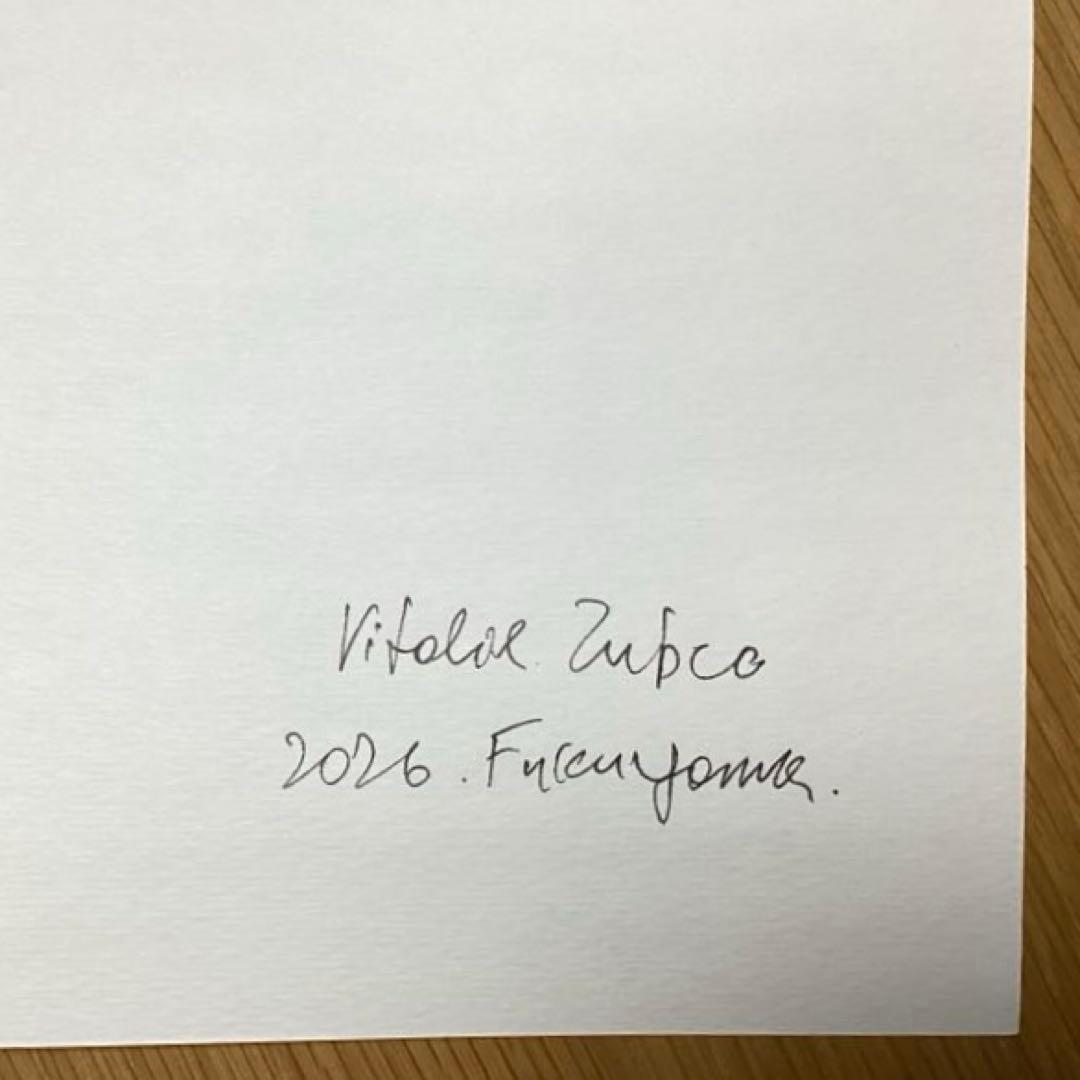 Vitalie Zubco
2026. Fukuyama.